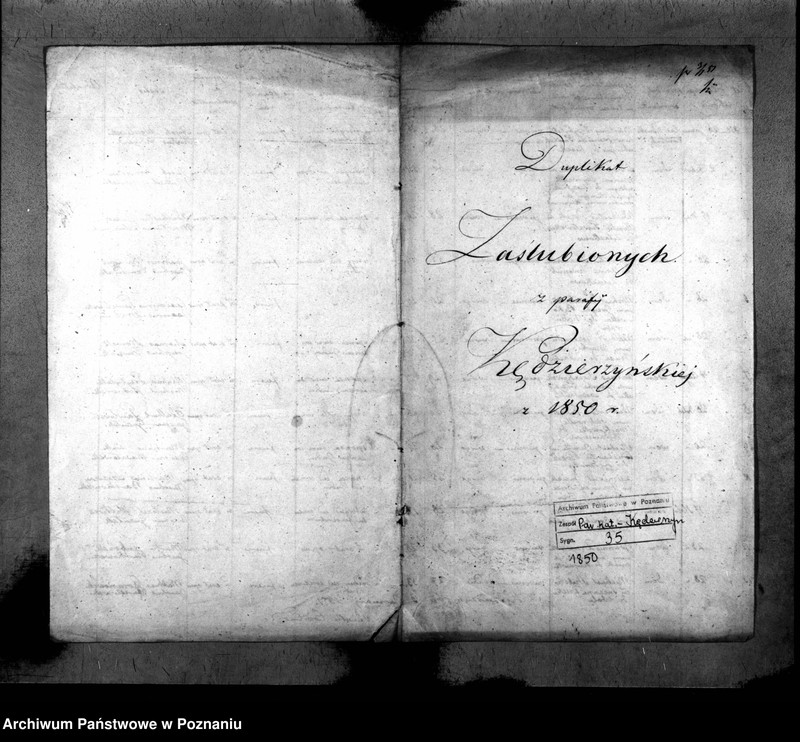 Duplikat
Zaślubionych
z parafij
Kędzierzyńskiej
z 1850 r.
Archiwum Państwowe w Poznaniu
Zespół Par. kat. - Kędzierzyn
Sygn. 35
1850
Archiwum Państwowe w Poznaniu